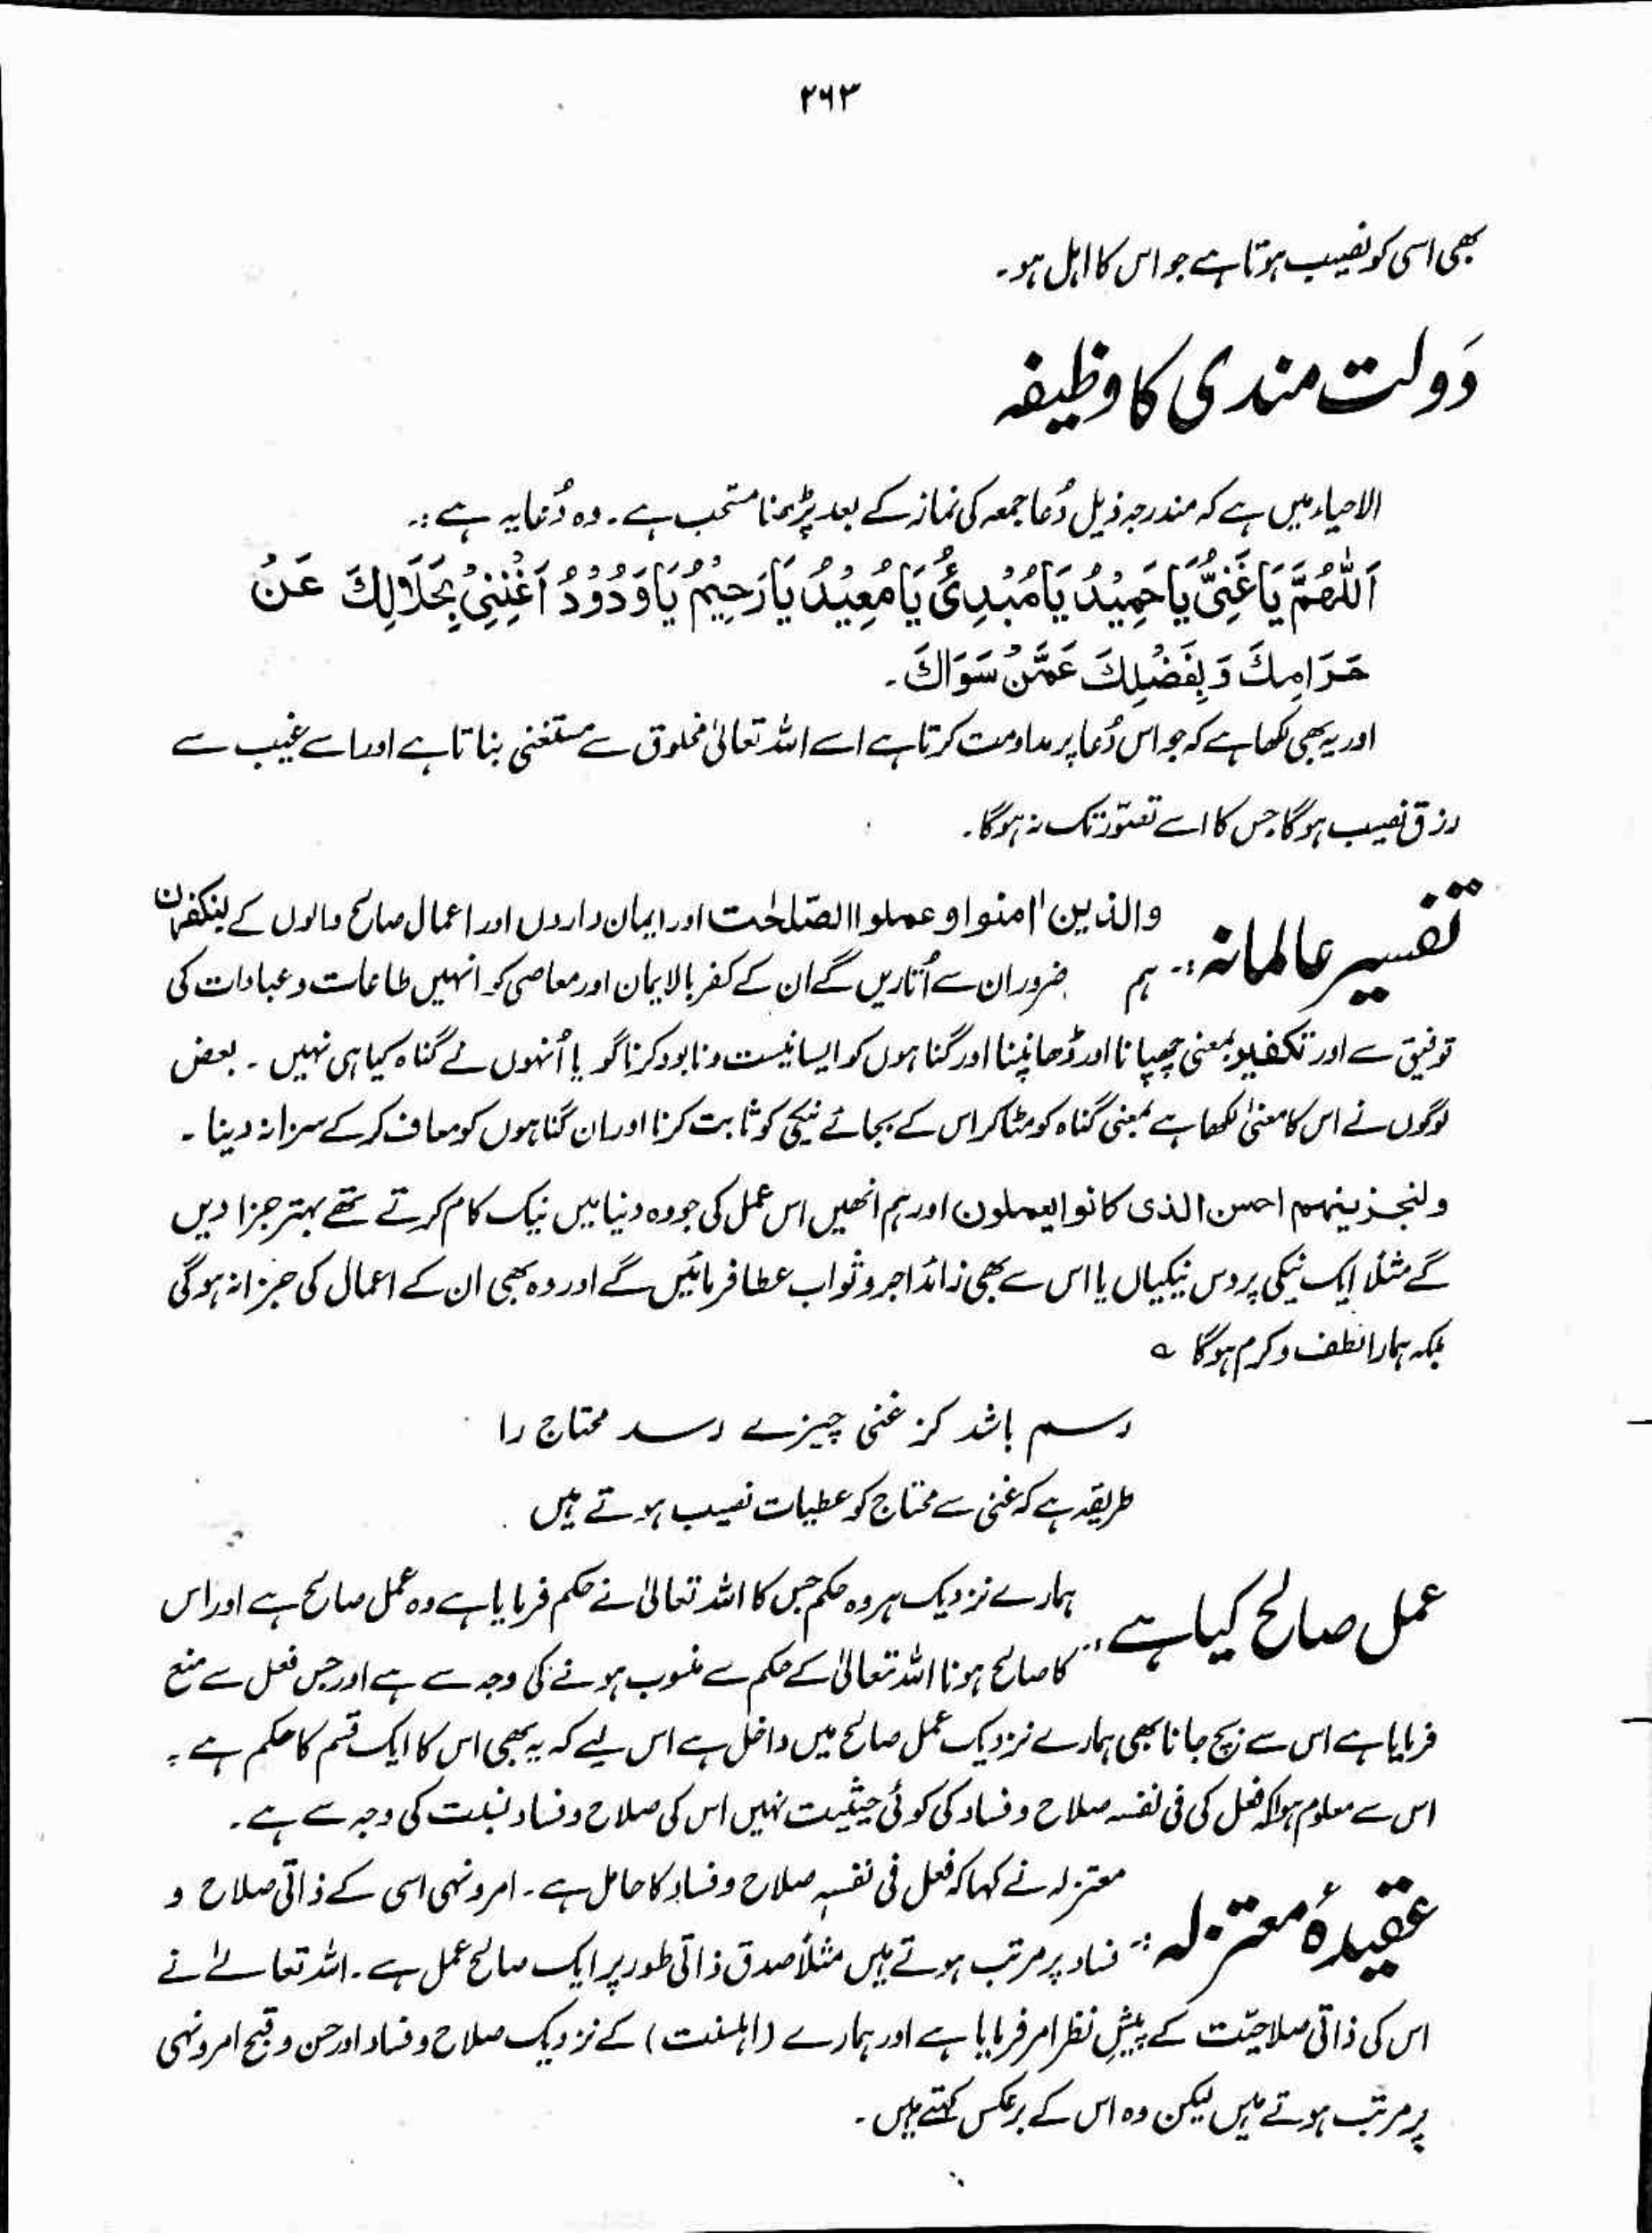 ۲۶۳
بھی اسی کو نصیب ہوتا ہے جو اس کا اہل ہو۔
دَولت مندی کا وظیفہ
الاحیاء میں ہے کہ مندرجہ ذیل دُعا جمعہ کی نماز کے بعد پڑھنا مستحب ہے۔ وہ دُعا یہ ہے :۔
اَللّٰهُمَّ يَا غَنِیُّ يَا حَمِيْدُ يَا مُبْدِیُٔ يَا مُعِيْدُ يَا رَحِيْمُ يَا وَدُوْدُ اَغْنِنِیْ بِحَلَالِكَ عَنْ
حَرَامِكَ وَ بِفَضْلِكَ عَمَّنْ سَوَاكَ۔
اور یہ بھی لکھا ہے کہ جو اس دُعا پر مداومت کرتا ہے اسے اللہ تعالیٰ مخلوق سے مستغنی بناتا ہے اور اسے غیب سے
رزق نصیب ہوگا جس کا اسے تصوّر تک نہ ہوگا۔
تفسیر عالمانہ :۔ والذین اٰمنوا وعملوا الصّٰلحٰت اور ایمان داروں اور اعمال صالح والوں کے لنکفرن
ہم ضرور ان سے اُتاریں گے ان کے کفر بالایمان اور معاصی کو انہیں طاعات و عبادات کی
توفیق سے اور تکفیر بمعنی چھپانا اور ڈھانپنا اور گناہوں کو ایسا نیست و نابود کرنا گویا اُنہوں نے گناہ کیا ہی نہیں ۔ بعض
لوگوں نے اس کا معنیٰ لکھا ہے بمعنی گناہ کو مٹا کر اس کے بجائے نیکی کو ثابت کرنا اور ان گناہوں کو معاف کر کے سزا نہ دینا ۔
ولنجزینہم احسن الذی کانوا یعملون اور ہم انھیں اس عمل کی جو وہ دنیا میں نیک کام کرتے تھے بہتر جزا دیں
گے مثلًا ایک نیکی پر دس نیکیاں یا اس سے بھی زائد اجر و ثواب عطا فرمائیں گے اور وہ بھی ان کے اعمال کی جزا نہ ہوگی
بلکہ ہمارا لطف و کرم ہوگا ؎
رسم باشد کز غنی چیزے رسد محتاج را
طریقہ ہے کہ غنی سے محتاج کو عطیات نصیب ہوتے ہیں
عمل صالح کیا ہے :۔ ہمارے نزدیک ہر وہ حکم جس کا اللہ تعالیٰ نے حکم فرمایا ہے وہ عمل صالح ہے اور اس
کا صالح ہونا اللہ تعالیٰ کے حکم سے منسوب ہونے کی وجہ سے ہے اور جس فعل سے منع
فرمایا ہے اس سے بچ جانا بھی ہمارے نزدیک عمل صالح میں داخل ہے اس لیے کہ یہ بھی اس کا ایک قسم کا حکم ہے ۔
اس سے معلوم ہوا کہ فعل کی فی نفسہ صلاح و فساد کی کوئی حیثیت نہیں اس کی صلاح و فساد نسبت کی وجہ سے ہے ۔
عقیدۂ معتزلہ :۔ معتزلہ نے کہا کہ فعل فی نفسہٖ صلاح و فساد کا حامل ہے۔ امر و نہی اسی کے ذاتی صلاح و
فساد پر مرتب ہوتے ہیں مثلًا صدق ذاتی طور پر ایک صالح عمل ہے۔ اللہ تعالےٰ نے
اس کی ذاتی صلاحیّت کے پیشِ نظر امر فرمایا ہے اور ہمارے (اہلسنت) کے نزدیک صلاح و فساد اور حسن و قبح امر و نہی
پر مرتب ہوتے ہیں لیکن وہ اس کے برعکس کہتے ہیں ۔